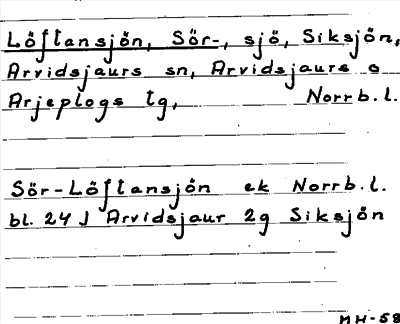 Löftansjön, Sör-, sjö, Siksjön,
Arvidsjaurs sn, Arvidsjaurs o
Arjeplogs tg, Norrb.l.
Sör-Löftansjön ek Norrb.l.
bl. 24 J Arvidsjaur 2g Siksjön
MH-58